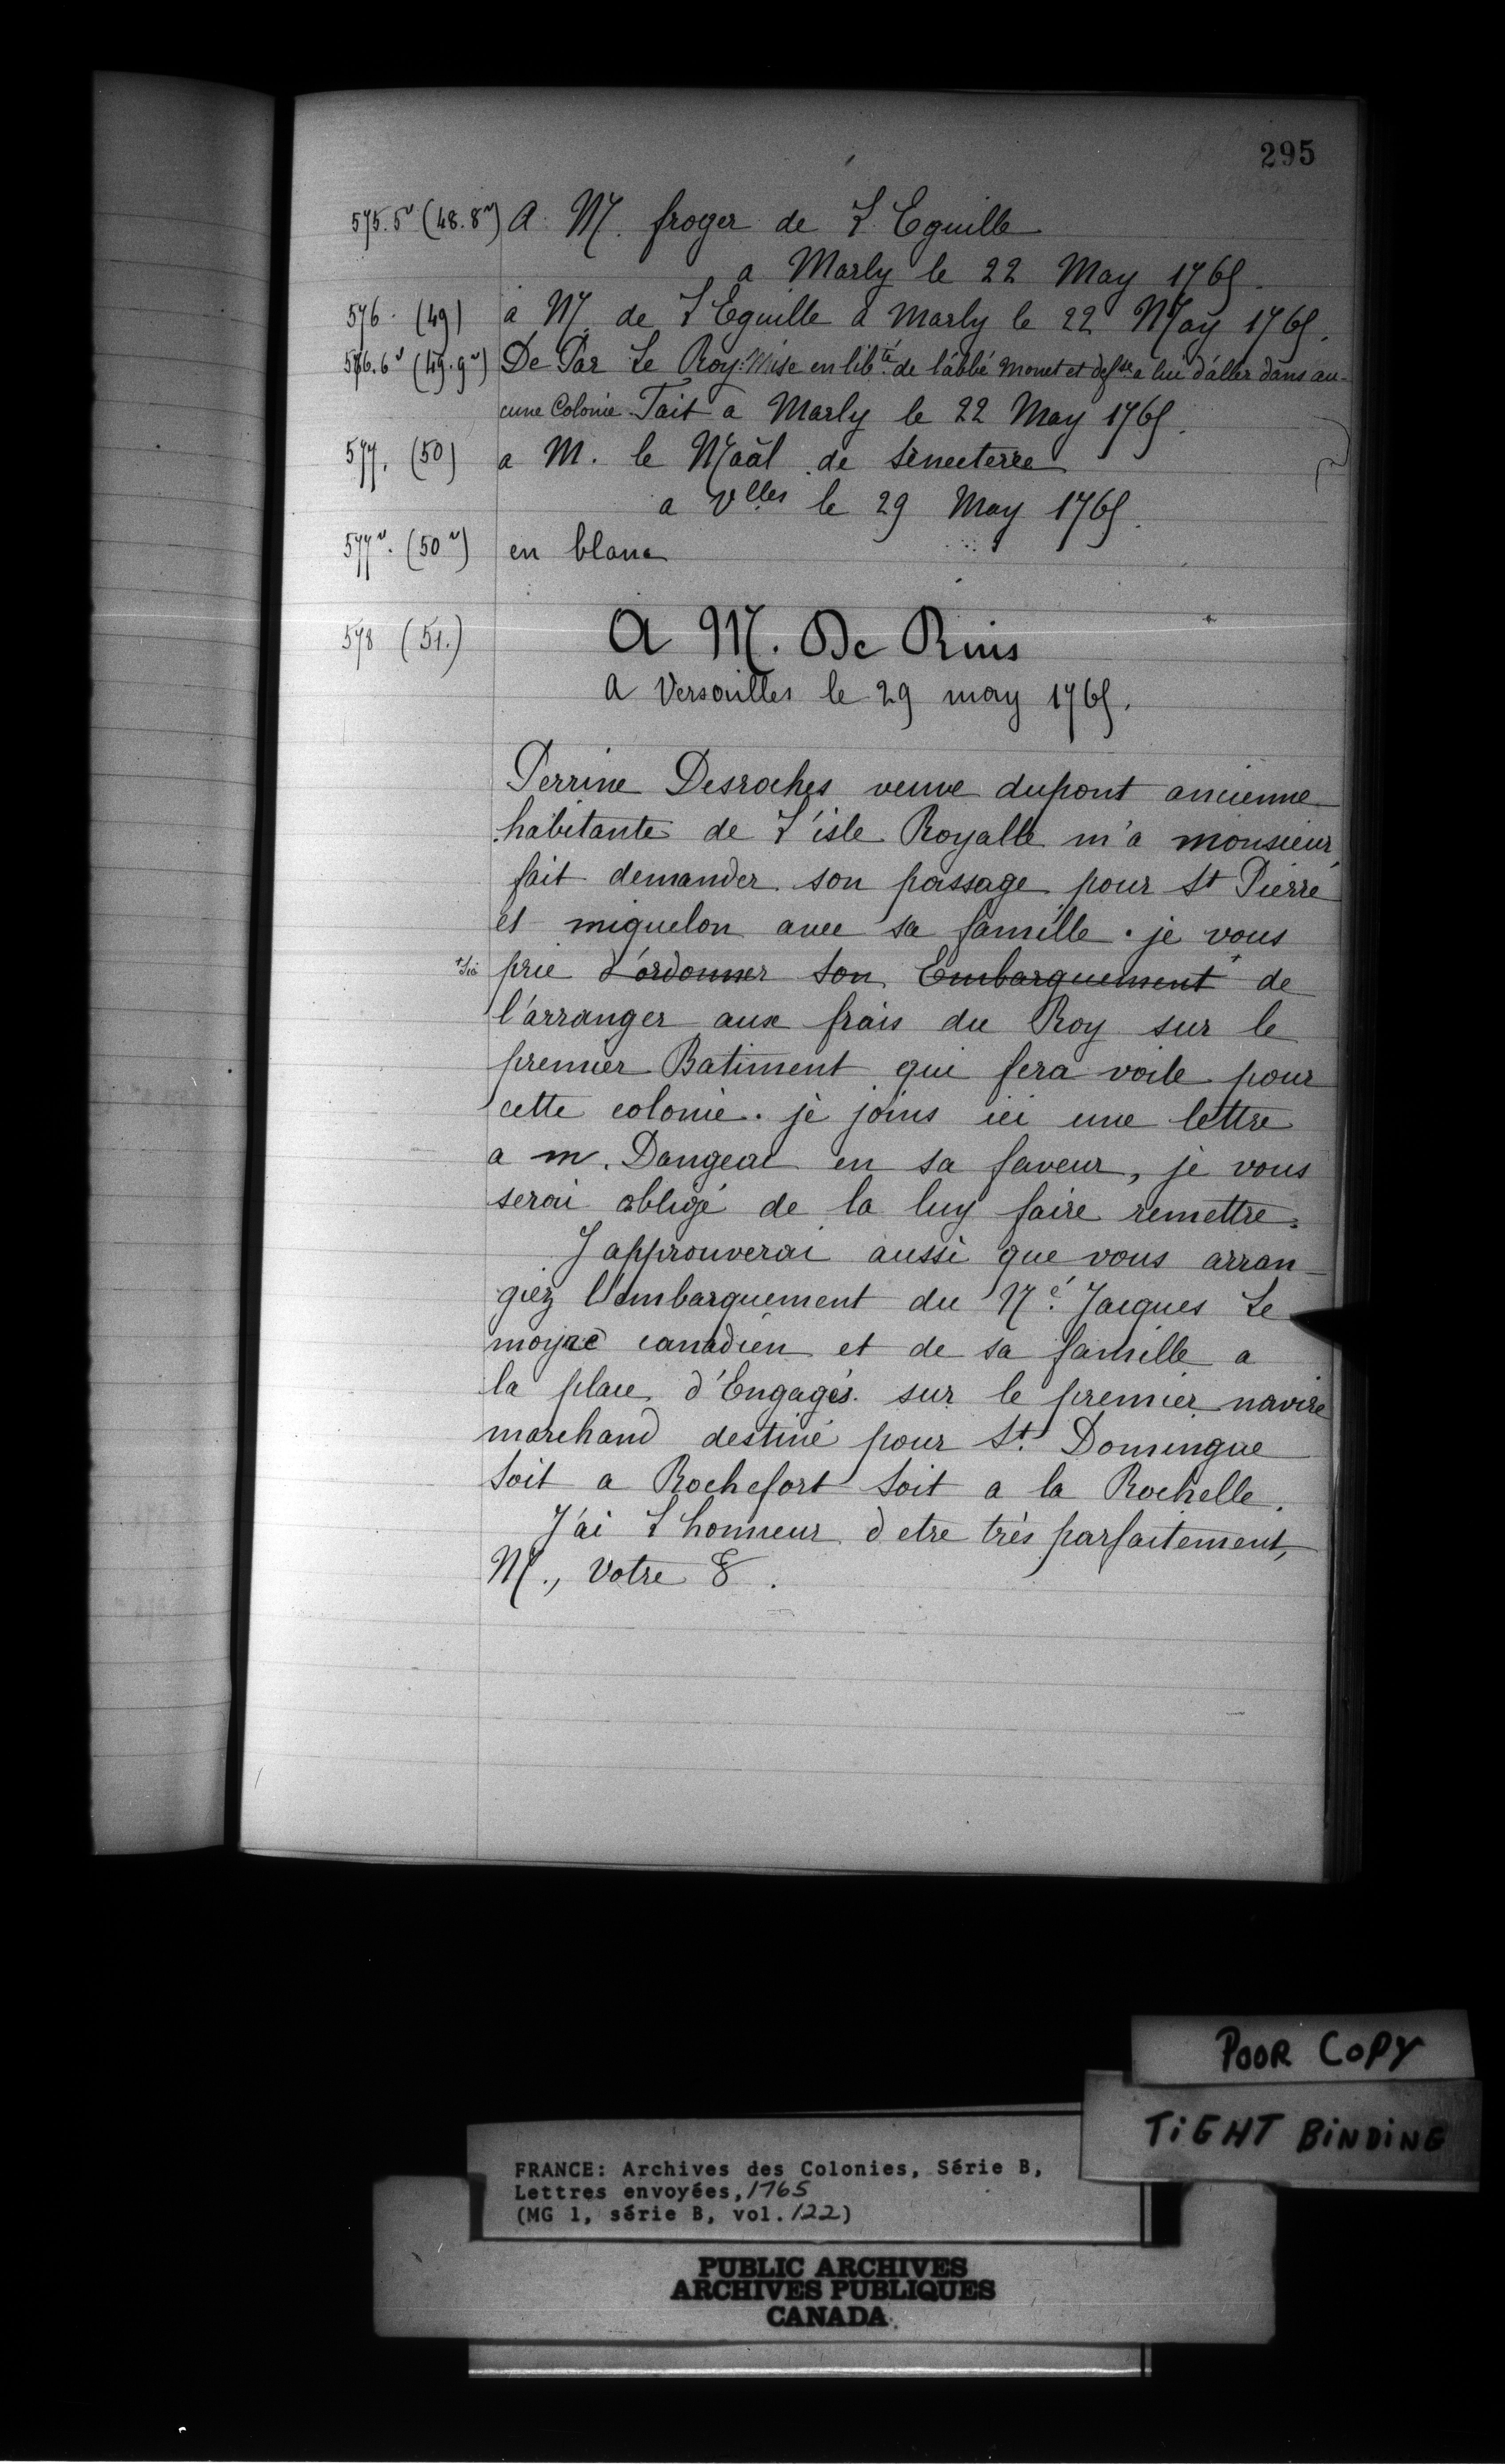 295
575.5v (48.8v) A M. froger de L Eguille
a Marly le 22 May 1765.
576. (49) a M. de L'Eguille a Marly le 22 May 1765.
576.6v (49.9v) De Par Le Roy: Mise en libté de l'abbé Monet et defse a lui d'aller dans au-
cune Colonie. Fait a Marly le 22 May 1765.
577. (50) a M. le Maāl de Senecterre
a Vlles le 29 May 1765.
577v. (50v) en blanc
578 (51.) A M. De Ruis
A Versailles le 29 may 1765.
Perrine Desroches veuve dupont ancienne
habitante de L'isle Royalle m'a monsieur,
fait demander son passage pour St Pierre
et miquelon avec sa famille. je vous
+Sic prie d'ordonner son Embarquement + de
l'arranger aux frais du Roy sur le
premier Batiment qui fera voile pour
cette colonie. je joins ici une lettre
a m. Dangeac en sa faveur, je vous
serai obligé de la luy faire remettre.
J approuverai aussi que vous arran-
giez l'embarquement du Né. Jacques Le
moyne canadien et de sa famille a
la place d'Engagés sur le premier navire
marchand destiné pour St. Domingue
soit a Rochefort soit a la Rochelle.
J'ai L honneur d etre très parfaitement,
M., Votre &.
POOR COPY
TIGHT BINDING
FRANCE: Archives des Colonies, Série B,
Lettres envoyées, 1765
(MG 1, série B, vol. 122)
PUBLIC ARCHIVES
ARCHIVES PUBLIQUES
CANADA